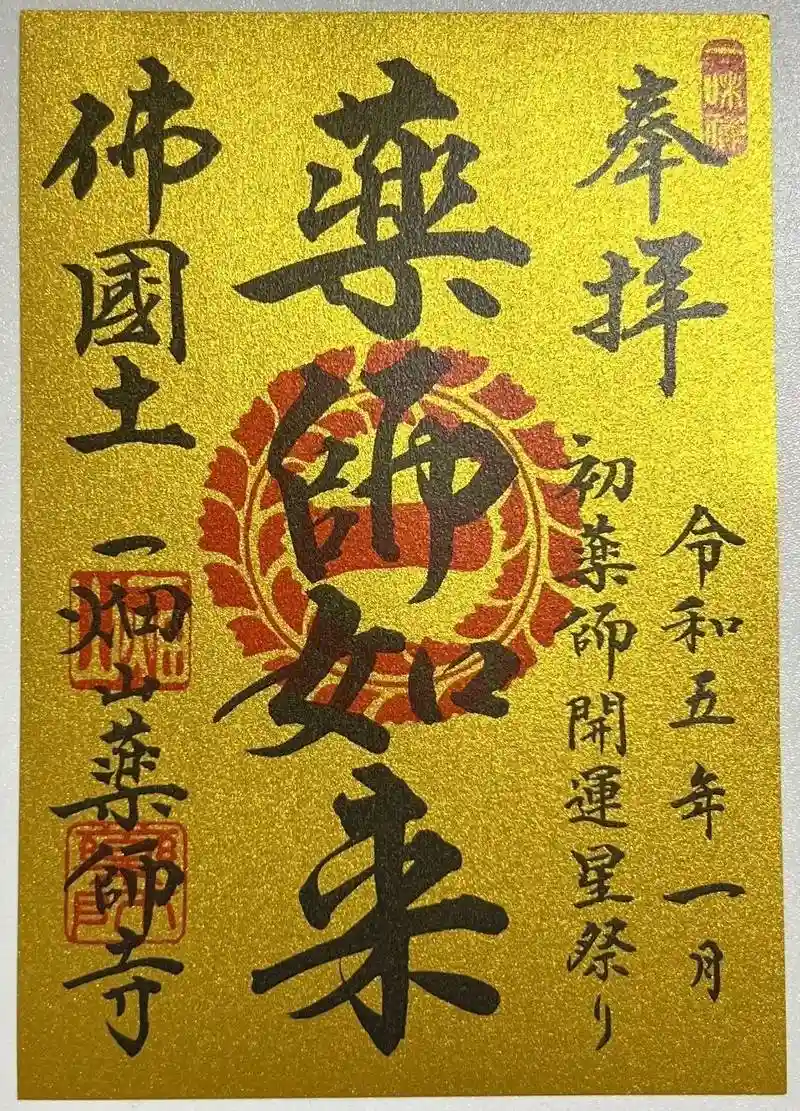 奉拝
令和五年一月
初薬師開運星祭り
薬師如来
佛國土
一畑山薬師寺